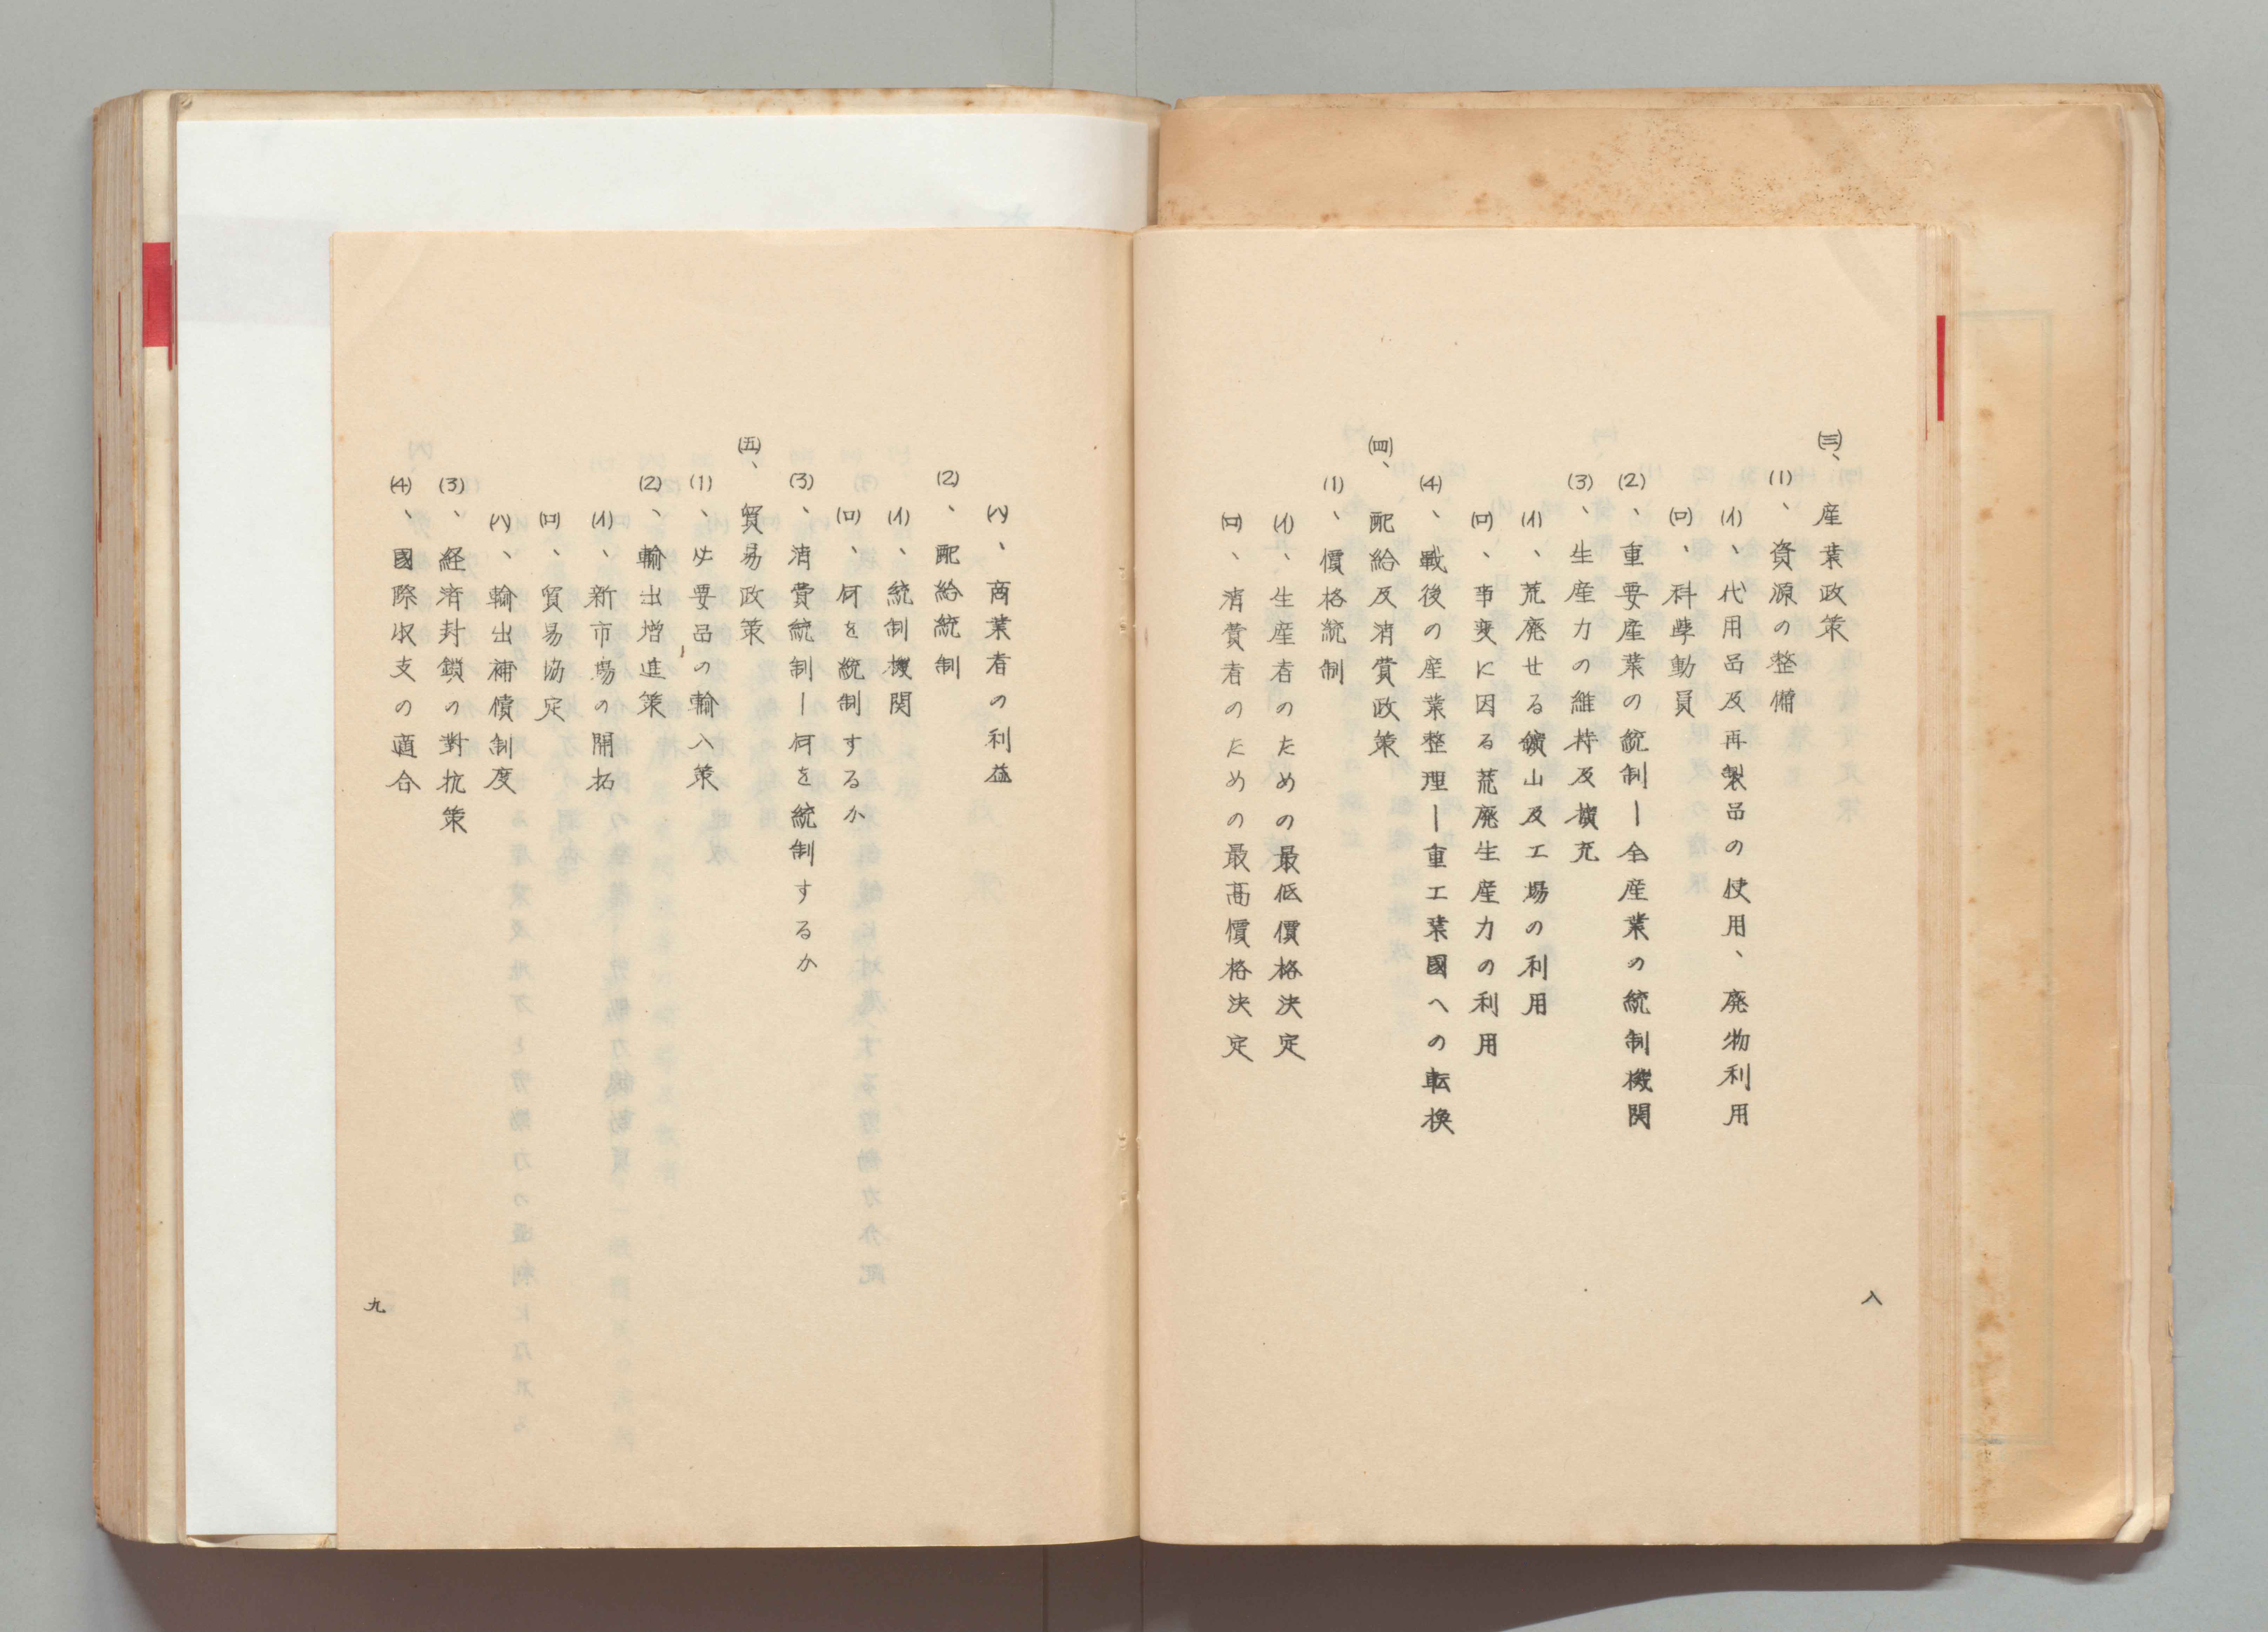 ㈢、産業政策
(1)、資源の整備
(イ)、代用品及再製品の使用、廃物利用
(ロ)、科学動員
(2)、重要産業の統制ー全産業の統制機関
(3)、生産力の維持及拡充
(イ)、荒廃せる鑛山及工場の利用
(ロ)、事変に因る荒廃生産力の利用
(4)、戰後の産業整理ー重工業國への転換
㈣、配給及消費政策
(1)、價格統制
(イ)、生産者のための最低價格決定
(ロ)、消費者のための最高價格決定
八
(ハ)、商業者の利益
(2)、配給統制
(イ)、統制機関
(ロ)、何を統制するか
(3)、消費統制ー何を統制するか
㈤、貿易政策
(1)、必要品の輸入策
(2)、輸出増進策
(イ)、新市場の開拓
(ロ)、貿易協定
(ハ)、輸出補償制度
(3)、経済封鎖の對抗策
(4)、國際收支の適合
九